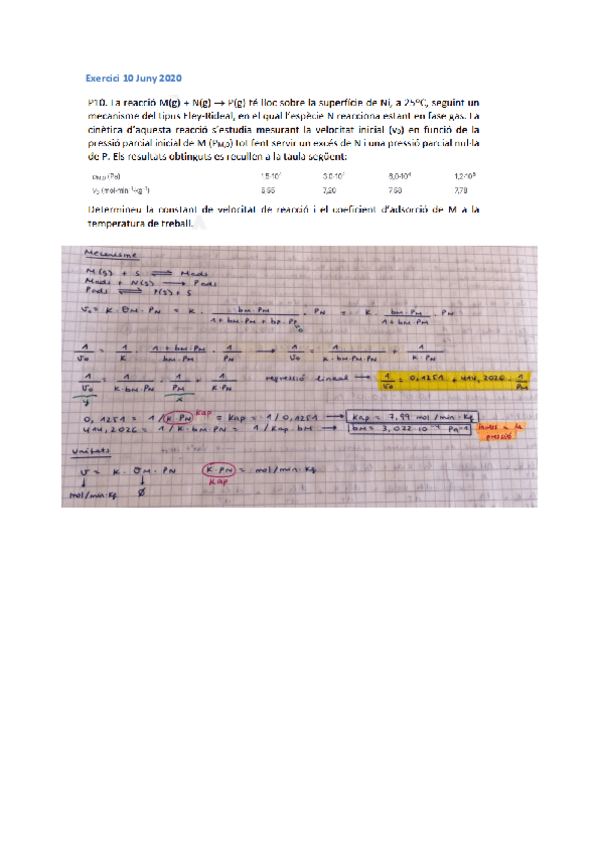 Exercici 10 Juny 2020
P10. La reacció M(g) + N(g) → P(g) té lloc sobre la superfície de Ni, a 25ºC, seguint un
mecanisme del tipus Eley-Rideal, en el qual l'espècie N reacciona estant en fase gas. La
cinètica d'aquesta reacció s'estudia mesurant la velocitat inicial (v₀) en funció de la
pressió parcial inicial de M (P_M,0) tot fent servir un excés de N i una pressió parcial nul·la
de P. Els resultats obtinguts es recullen a la taula següent:
(Pa) 1,5·10⁴ 3,0·10⁴ 6,0·10⁴ 1,2·10⁵
v₀ (mol·min⁻¹·kg⁻¹) 7,20 7,78
Determineu la constant de velocitat de reacció i el coeficient d'adsorció de M a la
temperatura de treball.
Mecanisme
M(g) + S ⇌ Mads
Mads + N(g) → Pads
Pads ⇌ P(g) + S
v₀ = K · θM · PN = K · bM·PM / 1 + bM·PM + bP·PP · PN = K · bM·PM / 1 + bM·PM · PN
1/v₀ = 1/K · 1 + bM·PM / bM·PM · 1/PN → 1/v₀ = 1/K·bM·PM·PN + 1/K·PN
1/v₀ = 1/K·bM·PN · 1/PM + 1/K·PN regressió lineal → 1/v₀ = 0,1251 + 414,2026 · 1/PM
y x
0,1251 = 1/K·PN Kap = Kap = 1/0,1251 → Kap = 7,99 mol/min·Kg
414,2026 = 1/K·bM·PN = 1/Kap·bM → bM = 3,022·10⁻⁴ Pa⁻¹ a la
pressió
Unitats
v = K · θM · PN K·PN = mol/min·Kg
Kap
mol/min·Kg Ø